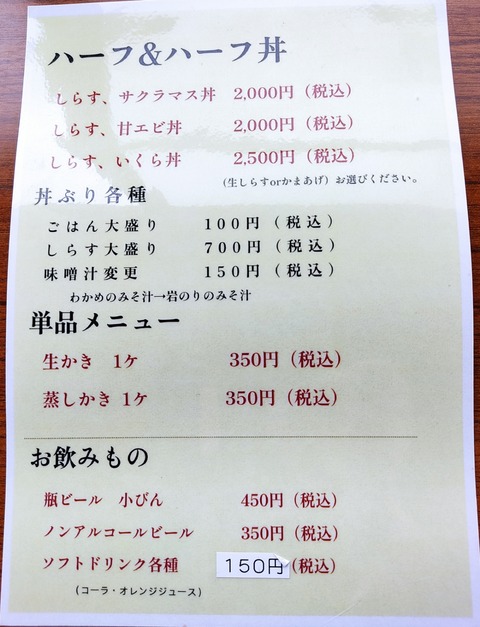 ハーフ&ハーフ丼
しらす、サクラマス丼 2,000円（税込）
しらす、甘エビ丼 2,000円（税込）
しらす、いくら丼 2,500円（税込）
（生しらすorかまあげ）お選びください。
丼ぶり各種
ごはん大盛り 100円（税込）
しらす大盛り 700円（税込）
味噌汁変更 150円（税込）
わかめのみそ汁→岩のりのみそ汁
単品メニュー
生かき 1ケ 350円（税込）
蒸しかき 1ケ 350円（税込）
お飲みもの
瓶ビール 小びん 450円（税込）
ノンアルコールビール 350円（税込）
ソフトドリンク各種 150円（税込）
（コーラ・オレンジジュース）